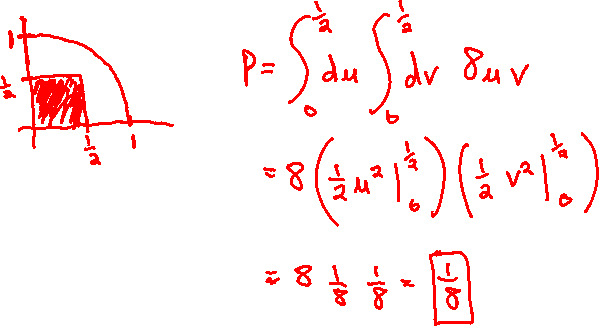 1
1/2
1/2 1
P = ∫₀^{1/2} du ∫₀^{1/2} dv 8uv
= 8 (1/2 u² |₀^{1/2}) (1/2 v² |₀^{1/2})
= 8 1/8 1/8 = 1/8